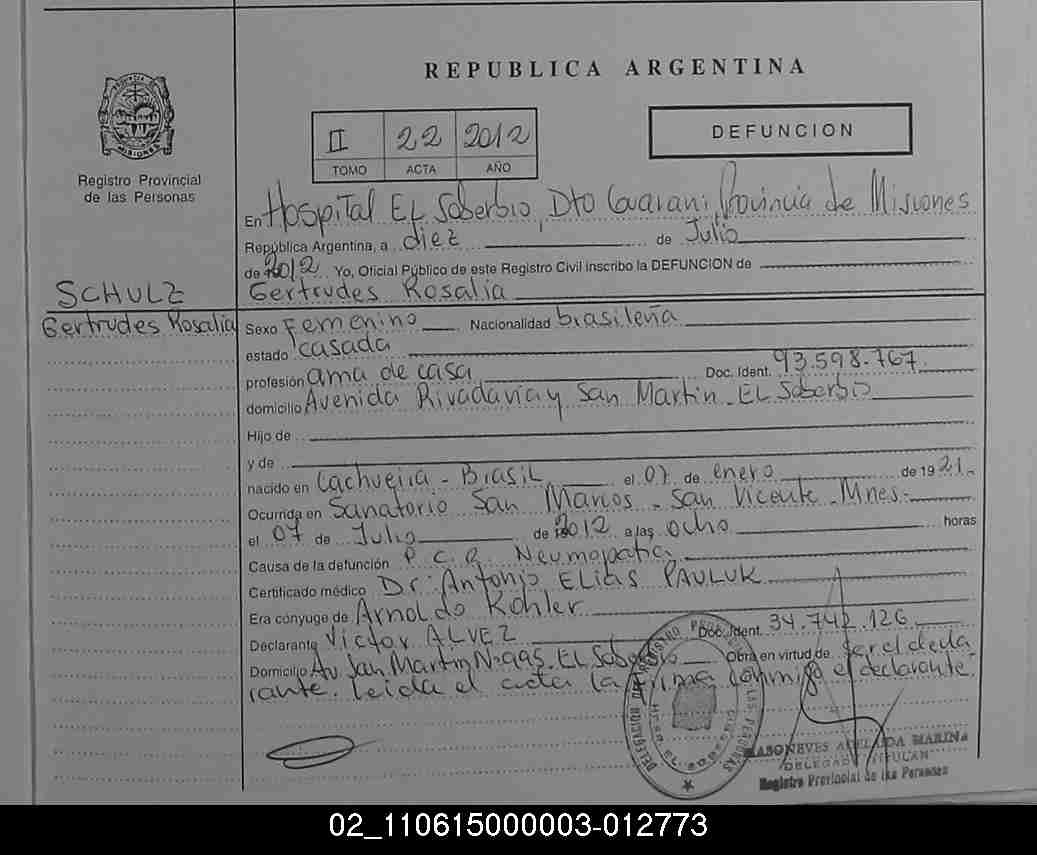 REPUBLICA ARGENTINA
II 22 2012
TOMO ACTA AÑO
DEFUNCION
Registro Provincial
de las Personas
En Hospital EL Soberbio, Dto Guarani Provincia de Misiones
República Argentina, a diez de Julio
de 2012 Yo, Oficial Público de este Registro Civil inscribo la DEFUNCION de
SCHULZ
Gertrudes Rosalia
Gertrudes Rosalia
Sexo Femenino Nacionalidad brasileña
estado casada
profesión ama de casa Doc. Ident. 93.598.767
domicilio Avenida Rivadavia y San Martin - EL Soberbio
Hijo de
y de
nacido en Cachueira - Brasil el 07 de enero de 1921
Ocurrida en Sanatorio San Marcos - San Vicente - Mnes-
el 07 de Julio de 2012 a las ocho horas
Causa de la defunción P.C.R. Neumopatia
Certificado médico Dr. Antonio ELIAS PAULUK
Era cónyuge de Arnoldo Kohler
Declarante Victor ALVEZ Doc. Ident. 34.742.126
Domicilio Av San Martin Nº 995. EL Soberbio Obra en virtud de ser el decla
rante. Leida el acta la firma conmigo el declarante.
DELEGACION DEL REGISTRO PROV. DE LAS PERSONAS
ADELAIDA MARINA
DELEGADO TITULAR
Registro Provincial de las Personas
02_110615000003-012773